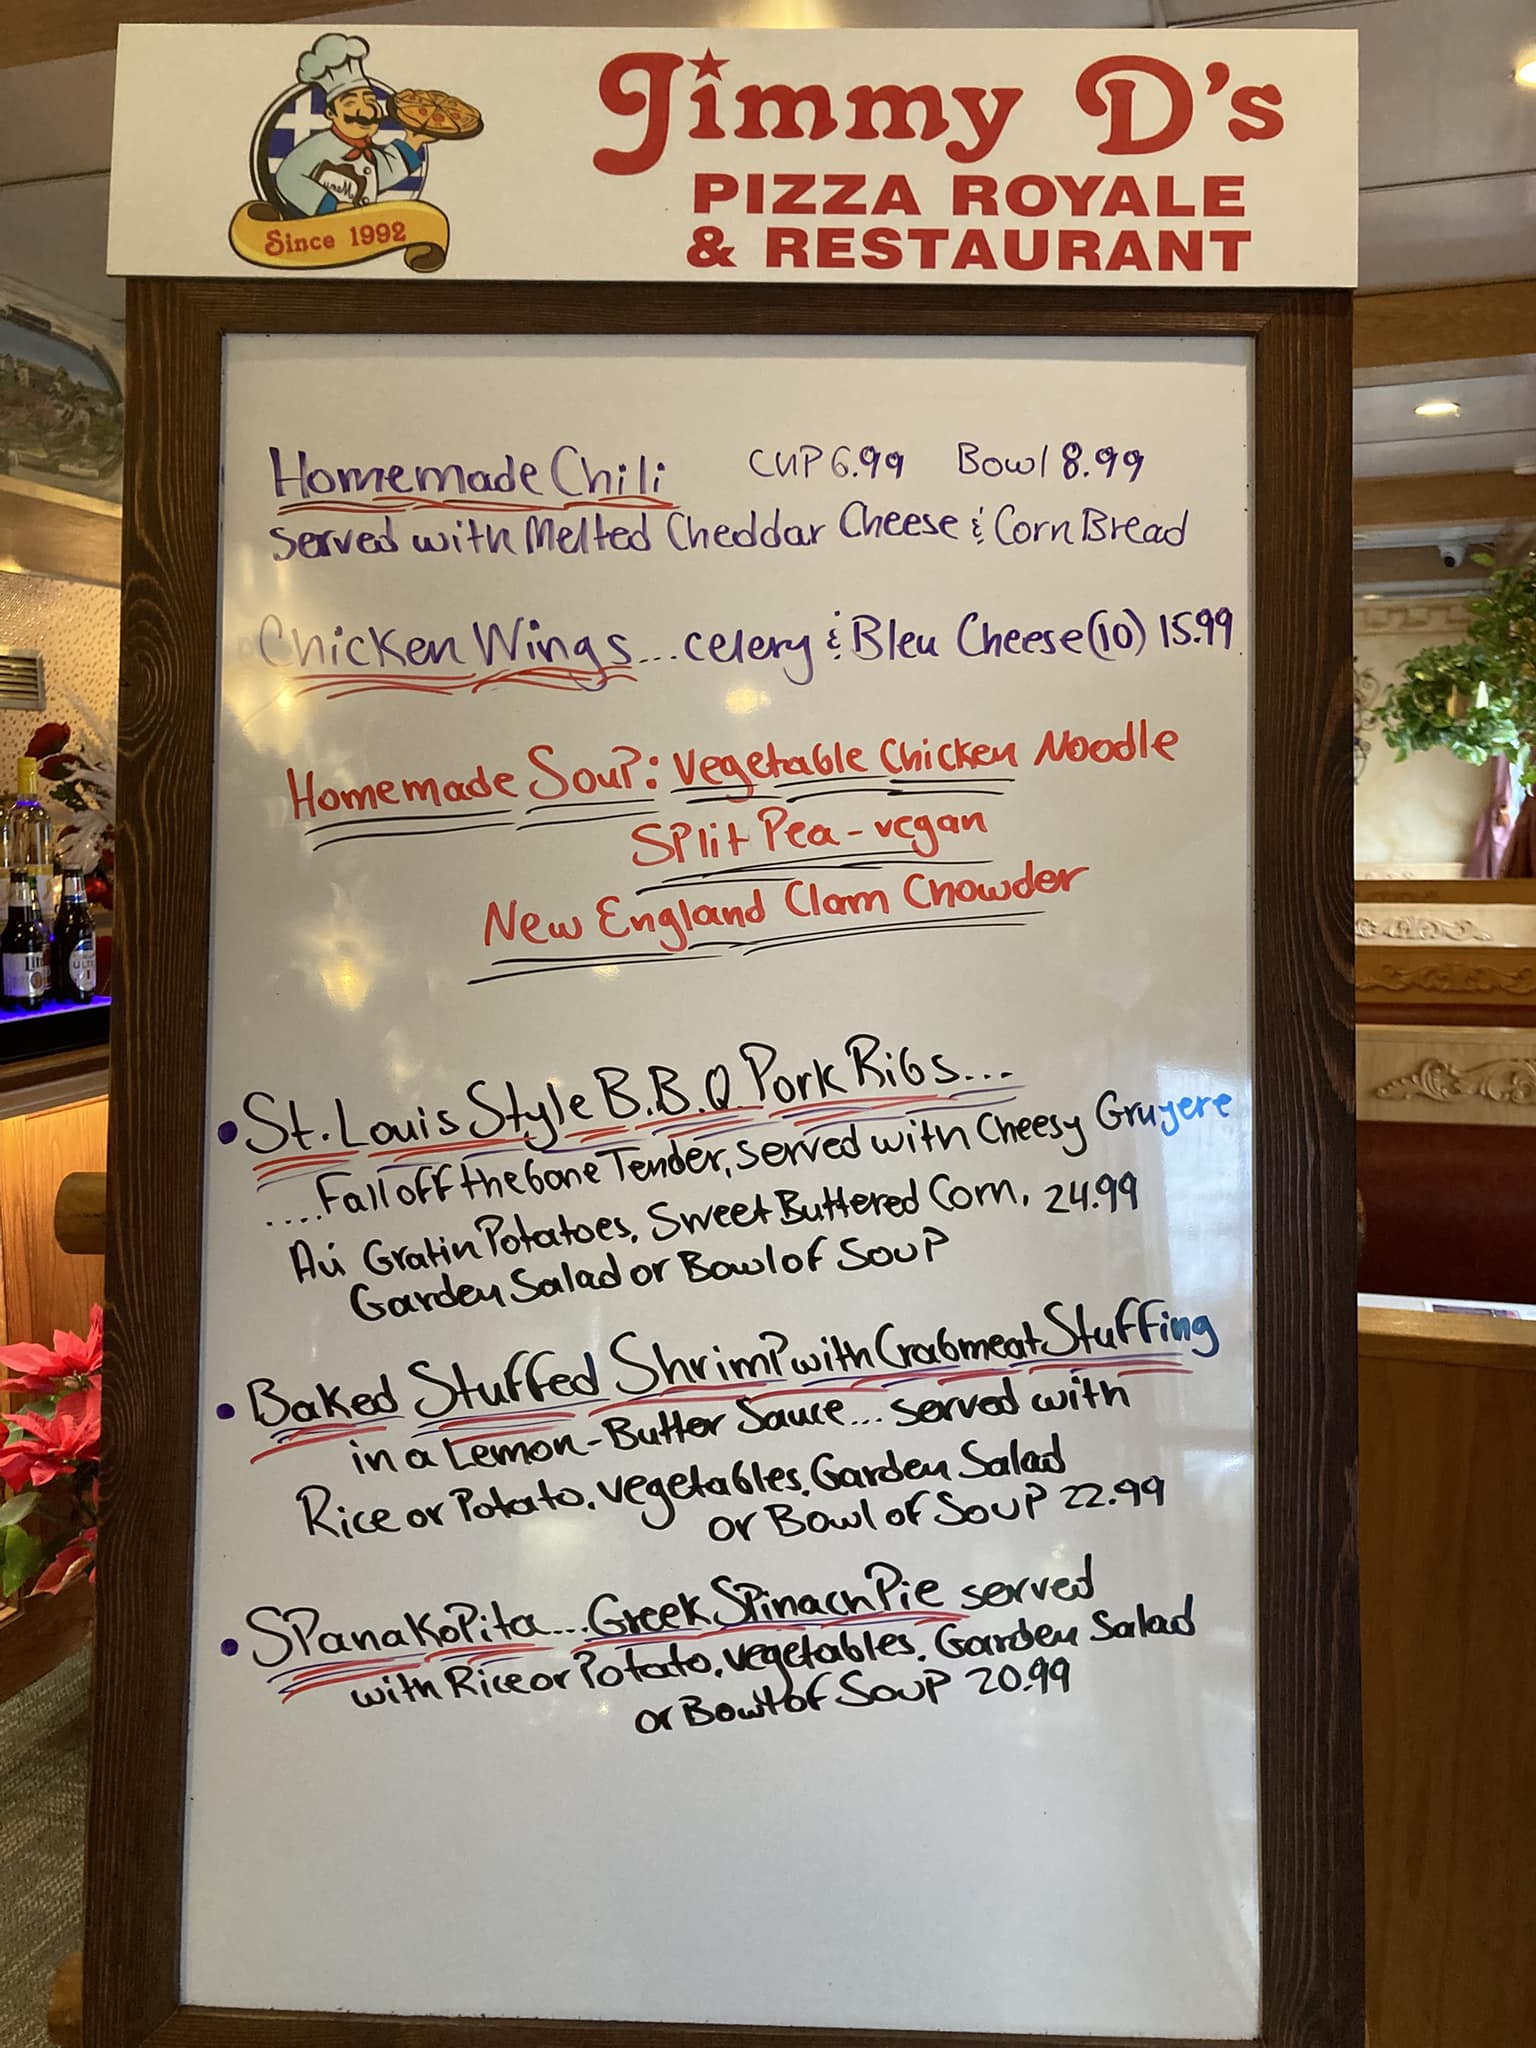 Jimmy D's
PIZZA ROYALE
& RESTAURANT
Since 1992
Homemade Chili CUP 6.99 Bowl 8.99
served with Melted Cheddar Cheese & Corn Bread
Chicken Wings...celery & Bleu Cheese(10) 15.99
Homemade Soup: Vegetable Chicken Noodle
Split Pea - vegan
New England Clam Chowder
• St. Louis Style B.B.Q Pork Ribs...
....Fall off the bone Tender, served with Cheesy Gruyere
Au Gratin Potatoes, Sweet Buttered Corn, 24.99
Garden Salad or Bowl of Soup
• Baked Stuffed Shrimp with Crabmeat Stuffing
in a Lemon-Butter Sauce... served with
Rice or Potato, vegetables, Garden Salad
or Bowl of Soup 22.99
• Spanakopita...Greek Spinach Pie served
with Rice or Potato, vegetables, Garden Salad
or Bowl of Soup 20.99